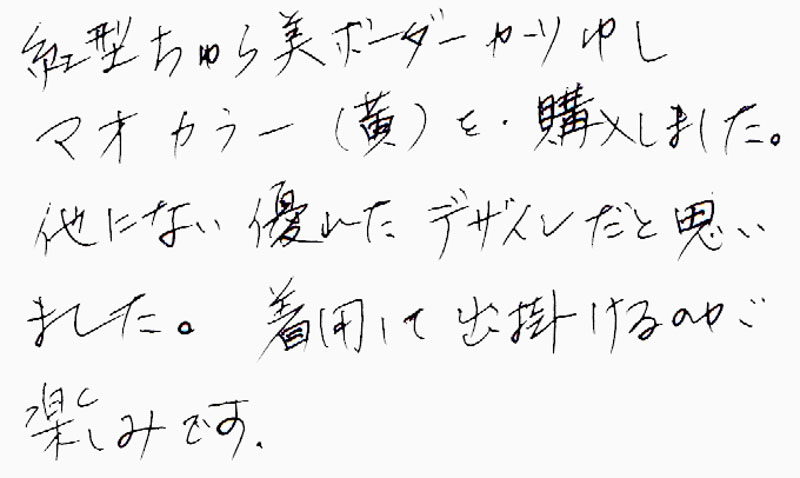 紅型ちゅら美ボーダーかりゆし
マオカラー(黄)を購入しました。
他にない優れたデザインだと思い
ました。着用して出掛けるのが
楽しみです。